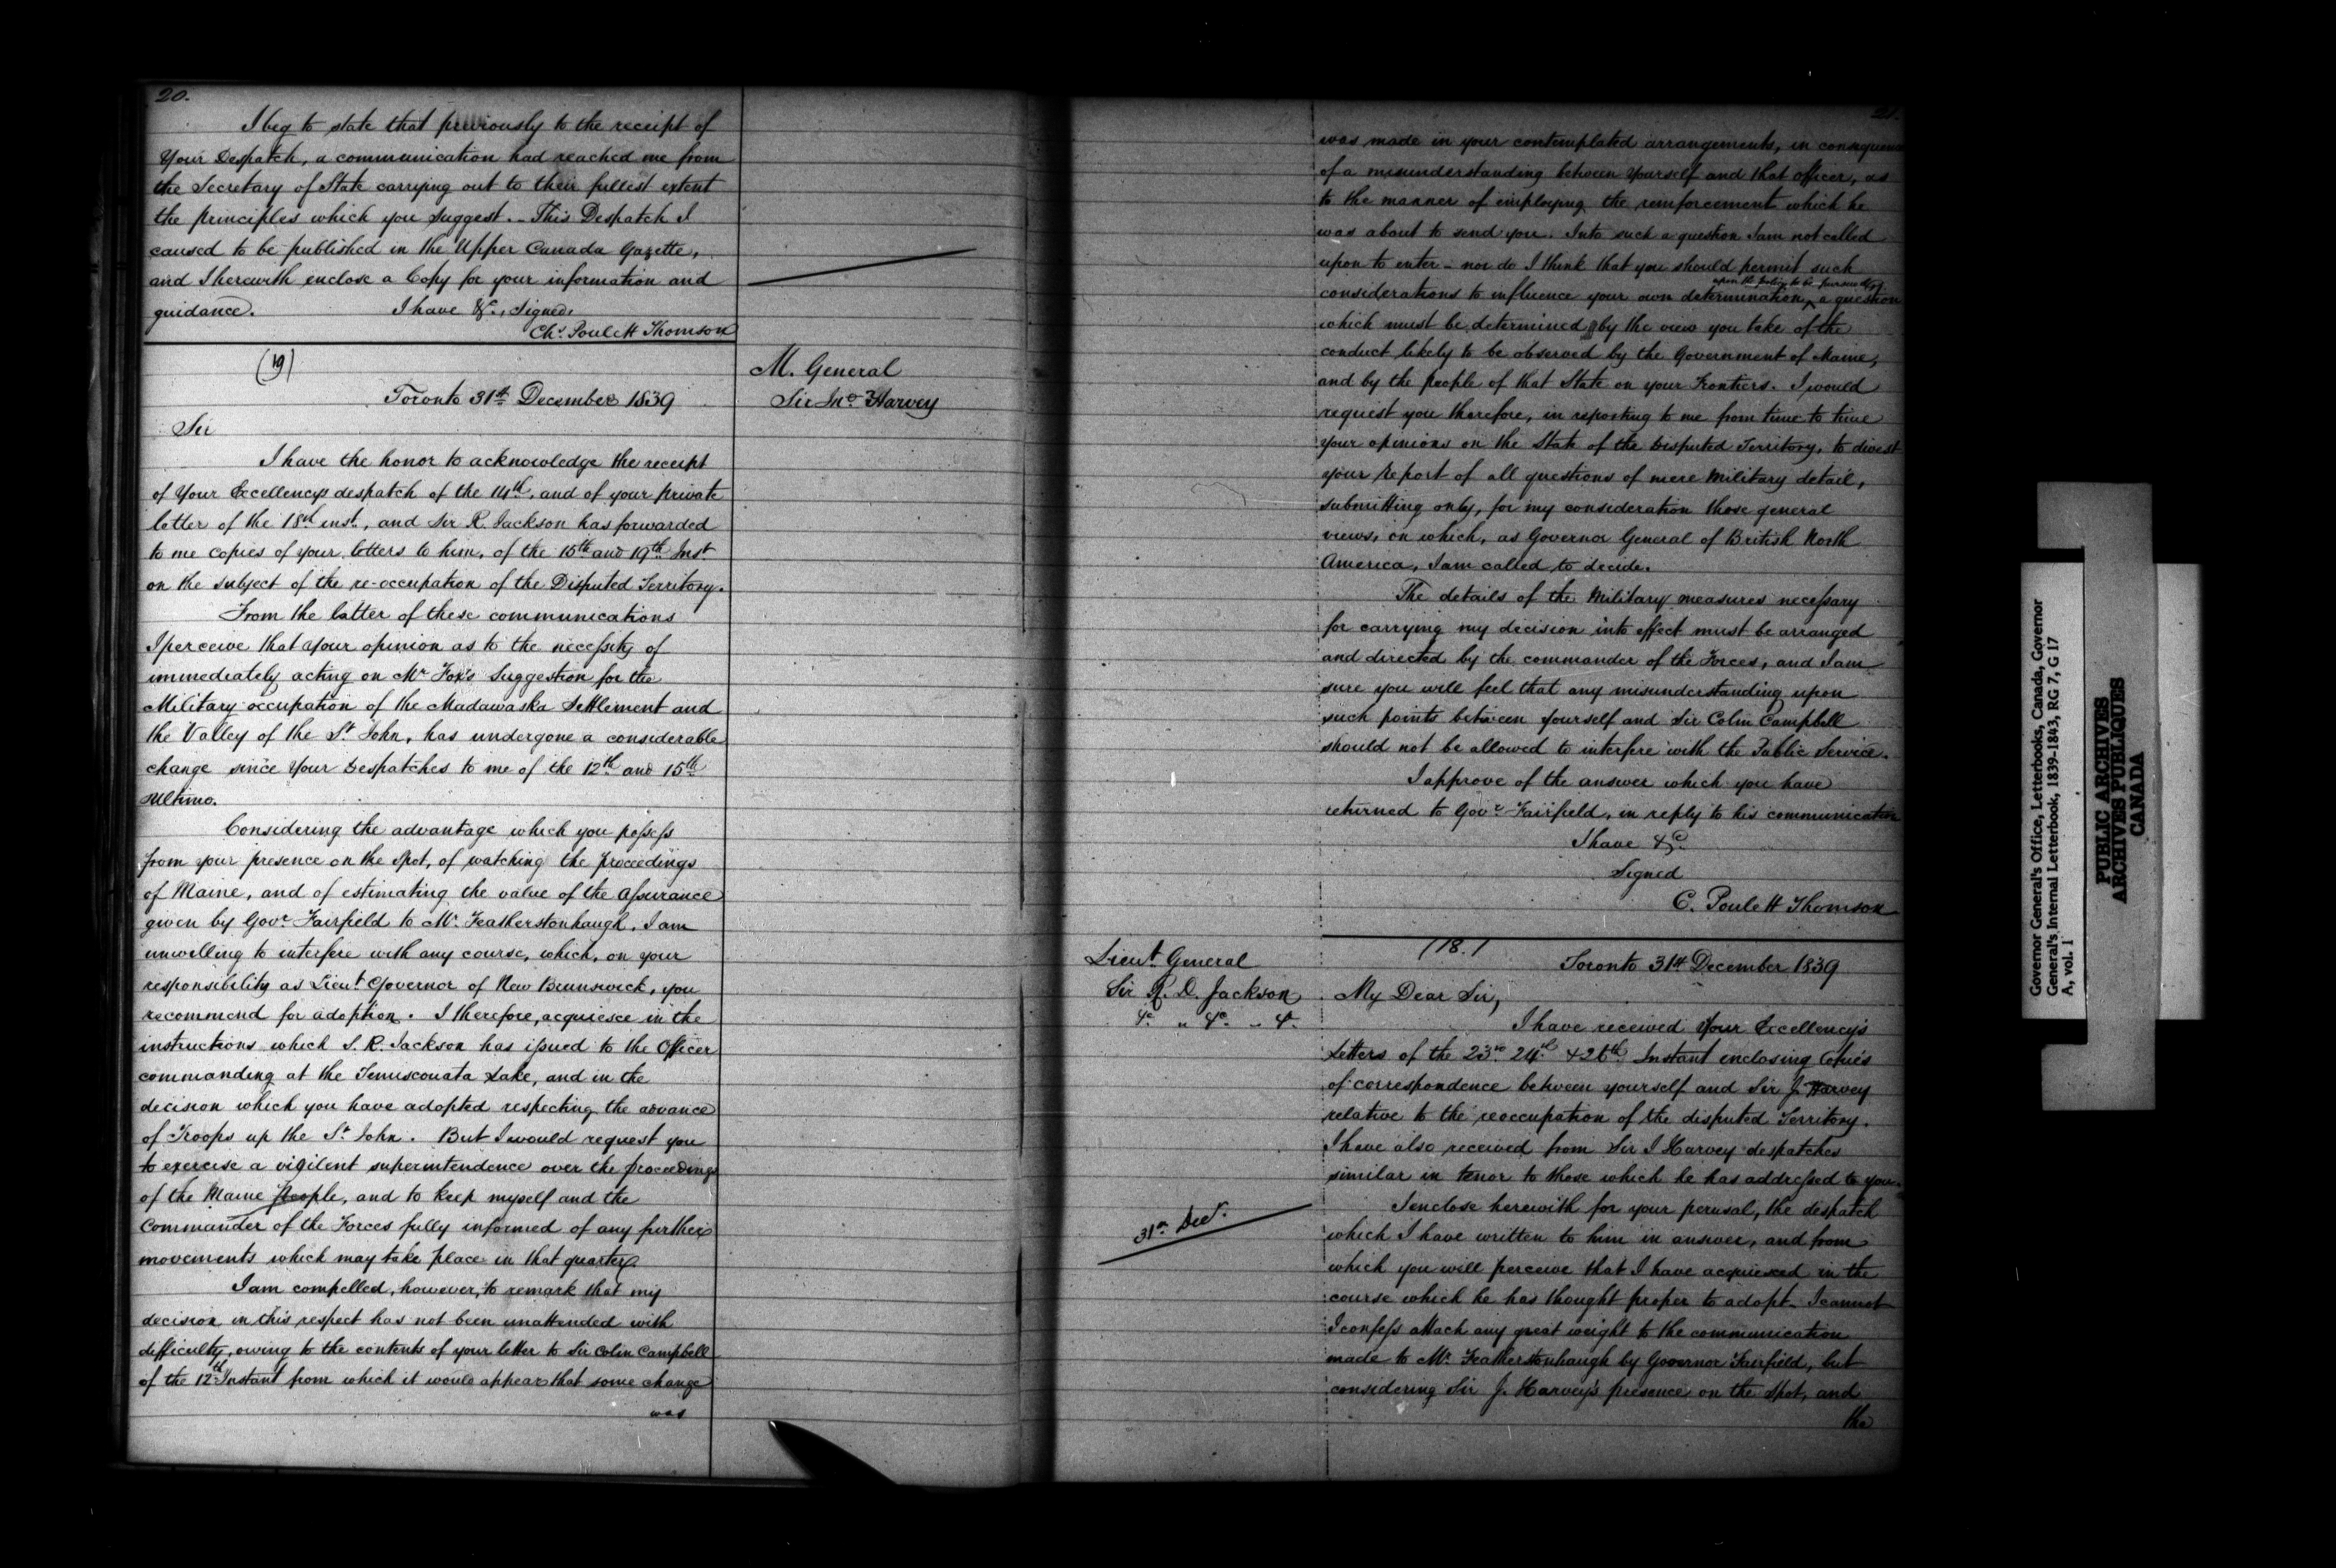 20.
I beg to state that previously to the receipt of
Your Despatch, a communication had reached me from
the Secretary of State carrying out to their fullest extent
the principles which you suggest. - This Despatch I
caused to be published in the Upper Canada Gazette,
and I herewith enclose a Copy for your information and
guidance. I have &c., Signed,
Chs. Poulett Thomson
(19)
M. General
Sir Jno. Harvey
Toronto 31st December 1839
Sir
I have the honor to acknowledge the receipt
of Your Excellency's despatch of the 14th, and of your private
letter of the 18th inst., and Sir R. Jackson has forwarded
to me copies of your letters to him, of the 15th and 19th Inst
on the subject of the re-occupation of the Disputed Territory.
From the latter of these communications
I perceive that your opinion as to the necessity of
immediately acting on Mr Fox's Suggestion for the
Military occupation of the Madawaska Settlement and
the Valley of the St John, has undergone a considerable
change since Your Despatches to me of the 12th and 15th
Ultimo.
Considering the advantage which you possess
from your presence on the spot, of watching the proceedings
of Maine, and of estimating the value of the assurance
given by Govr Fairfield to Mr Featherstonhaugh, I am
unwilling to interfere with any course, which, on your
responsibility as Lieut Governor of New Brunswick, you
recommend for adoption. I therefore, acquiesce in the
instructions which S. R. Jackson has issued to the Officer
commanding at the Temiscouata Lake, and in the
decision which you have adopted respecting the advance
of Troops up the St John. But I would request you
to exercise a vigilent superintendence over the proceedings
of the Maine People, and to keep myself and the
Commander of the Forces fully informed of any further
movements which may take place in that quarter.
I am compelled, however, to remark that my
decision in this respect has not been unattended with
difficulty, owing to the contents of your letter to Sir Colin Campbell
of the 12th Instant from which it would appear that some change
was
21.
was made in your contemplated arrangements, in consequence
of a misunderstanding between Yourself and that Officer, as
to the manner of employing the reinforcement which he
was about to send you. Into such a question I am not called
upon to enter - nor do I think that you should permit such
upon the policy to be pursued,
considerations to influence your own determination, a question
which must be determined by the view you take of the
conduct likely to be observed by the Government of Maine,
and by the people of that State on your Frontiers. I would
request you therefore, in reporting to me from time to time
your opinions on the State of the Disputed Territory, to divest
your report of all questions of mere Military detail,
submitting only, for my consideration those general
views, on which, as Governor General of British North
America, I am called to decide.
The details of the Military measures necessary
for carrying my decision into effect must be arranged
and directed by the commander of the Forces, and I am
sure you will feel that any misunderstanding upon
such points between yourself and Sir Colin Campbell
should not be allowed to interfere with the Public Service.
I approve of the answer which you have
returned to Govr Fairfield, in reply to his communication
I have &c
Signed
C. Poulett Thomson
(18.)
Lieut General
Sir R. D. Jackson
&c " &c " &c
Toronto 31st December 1839
My Dear Sir,
I have received Your Excellency's
Letters of the 23rd 24th & 26th Instant enclosing Copies
of correspondence between yourself and Sir J. Harvey
relative to the reoccupation of the disputed Territory.
I have also received from Sir J Harvey despatches
similar in tenor to those which he has addressed to you.
I enclose herewith for your perusal, the despatch
31st Decr.
which I have written to him in answer, and from
which you will perceive that I have acquiesced in the
course which he has thought proper to adopt. I cannot
I confess attach any great weight to the communication
made to Mr Featherstonhaugh by Governor Fairfield, but
considering Sir J. Harvey's presence on the Spot, and
the
Governor General's Office, Letterbooks, Canada, Governor
General's Internal Letterbook, 1839-1843, RG 7, G 17
A, vol. 1
PUBLIC ARCHIVES
ARCHIVES PUBLIQUES
CANADA